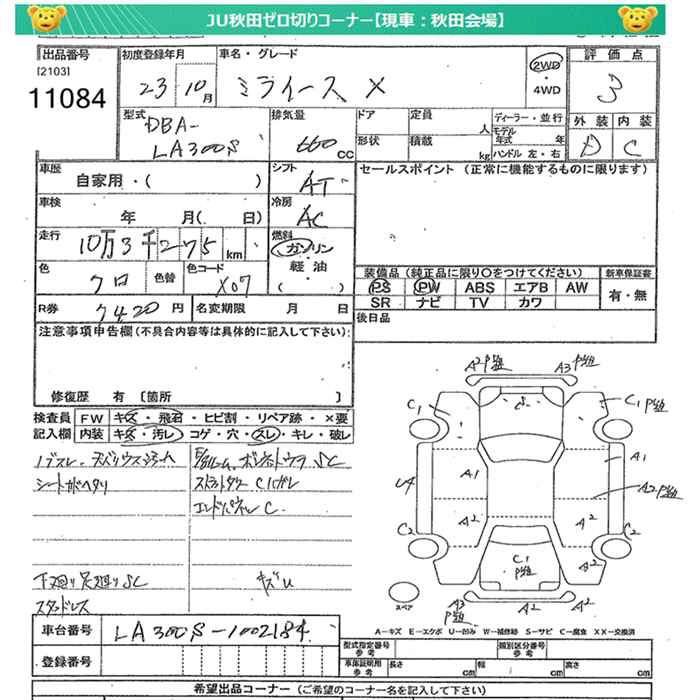 JU秋田ゼロ切りコーナー【現車：秋田会場】
出品番号
[2103]
11084
初度登録年月
23 10月
車名・グレード
ミライース X
2WD
・
4WD
評価点
3
外装 内装
D C
型式
DBA-
LA300S
排気量
660 CC
ドア
形状
定員
人
積載
kg
ディーラー・並行
モデル
年式 年
ハンドル 左・右
車歴
自家用・( )
シフト
AT
セールスポイント (正常に機能するものに限ります)
車検
年 月( 日)
冷房
AC
走行
10万3千275 km
燃料
ガソリン
・
軽油
・
( )
色
クロ
色替
色コード
X07
装備品(純正品に限り○をつけてください)
PS PW ABS エアB AW
SR ナビ TV カワ
新車保証書
有・無
R券
7420 円
名変期限 月 日
後日品
注意事項申告欄(不具合内容等は具体的に記入して下さい):
修復歴 有 〔箇所 〕
検査員
記入欄
FW キズ・飛石・ヒビ割・リペア跡・×要
内装 キズ・汚レ・コゲ・穴・スレ・キレ・破レ
シートカバーヘタリ
エンドパネル C
下廻り足廻りSC
キズU
スタッドレス
A2 P処
A3 P処
C1
C1 P処
A1
A1
U4
A2 P処
A2
A2
C2
C2
A2
A2
C1
P処
A3
P処
A2
A2
スペア
A－キズ E－エクボ U－凹み W－補修跡 S－サビ C－腐食 XX－交換済
車台番号
LA300S-1002184
登録番号
型式指定番号
参考
類別区分番号
参考
車体証明用
参考
長さ cm
幅 cm
高さ cm
希望出品コーナー (ご希望のコーナー名を記入して下さい)